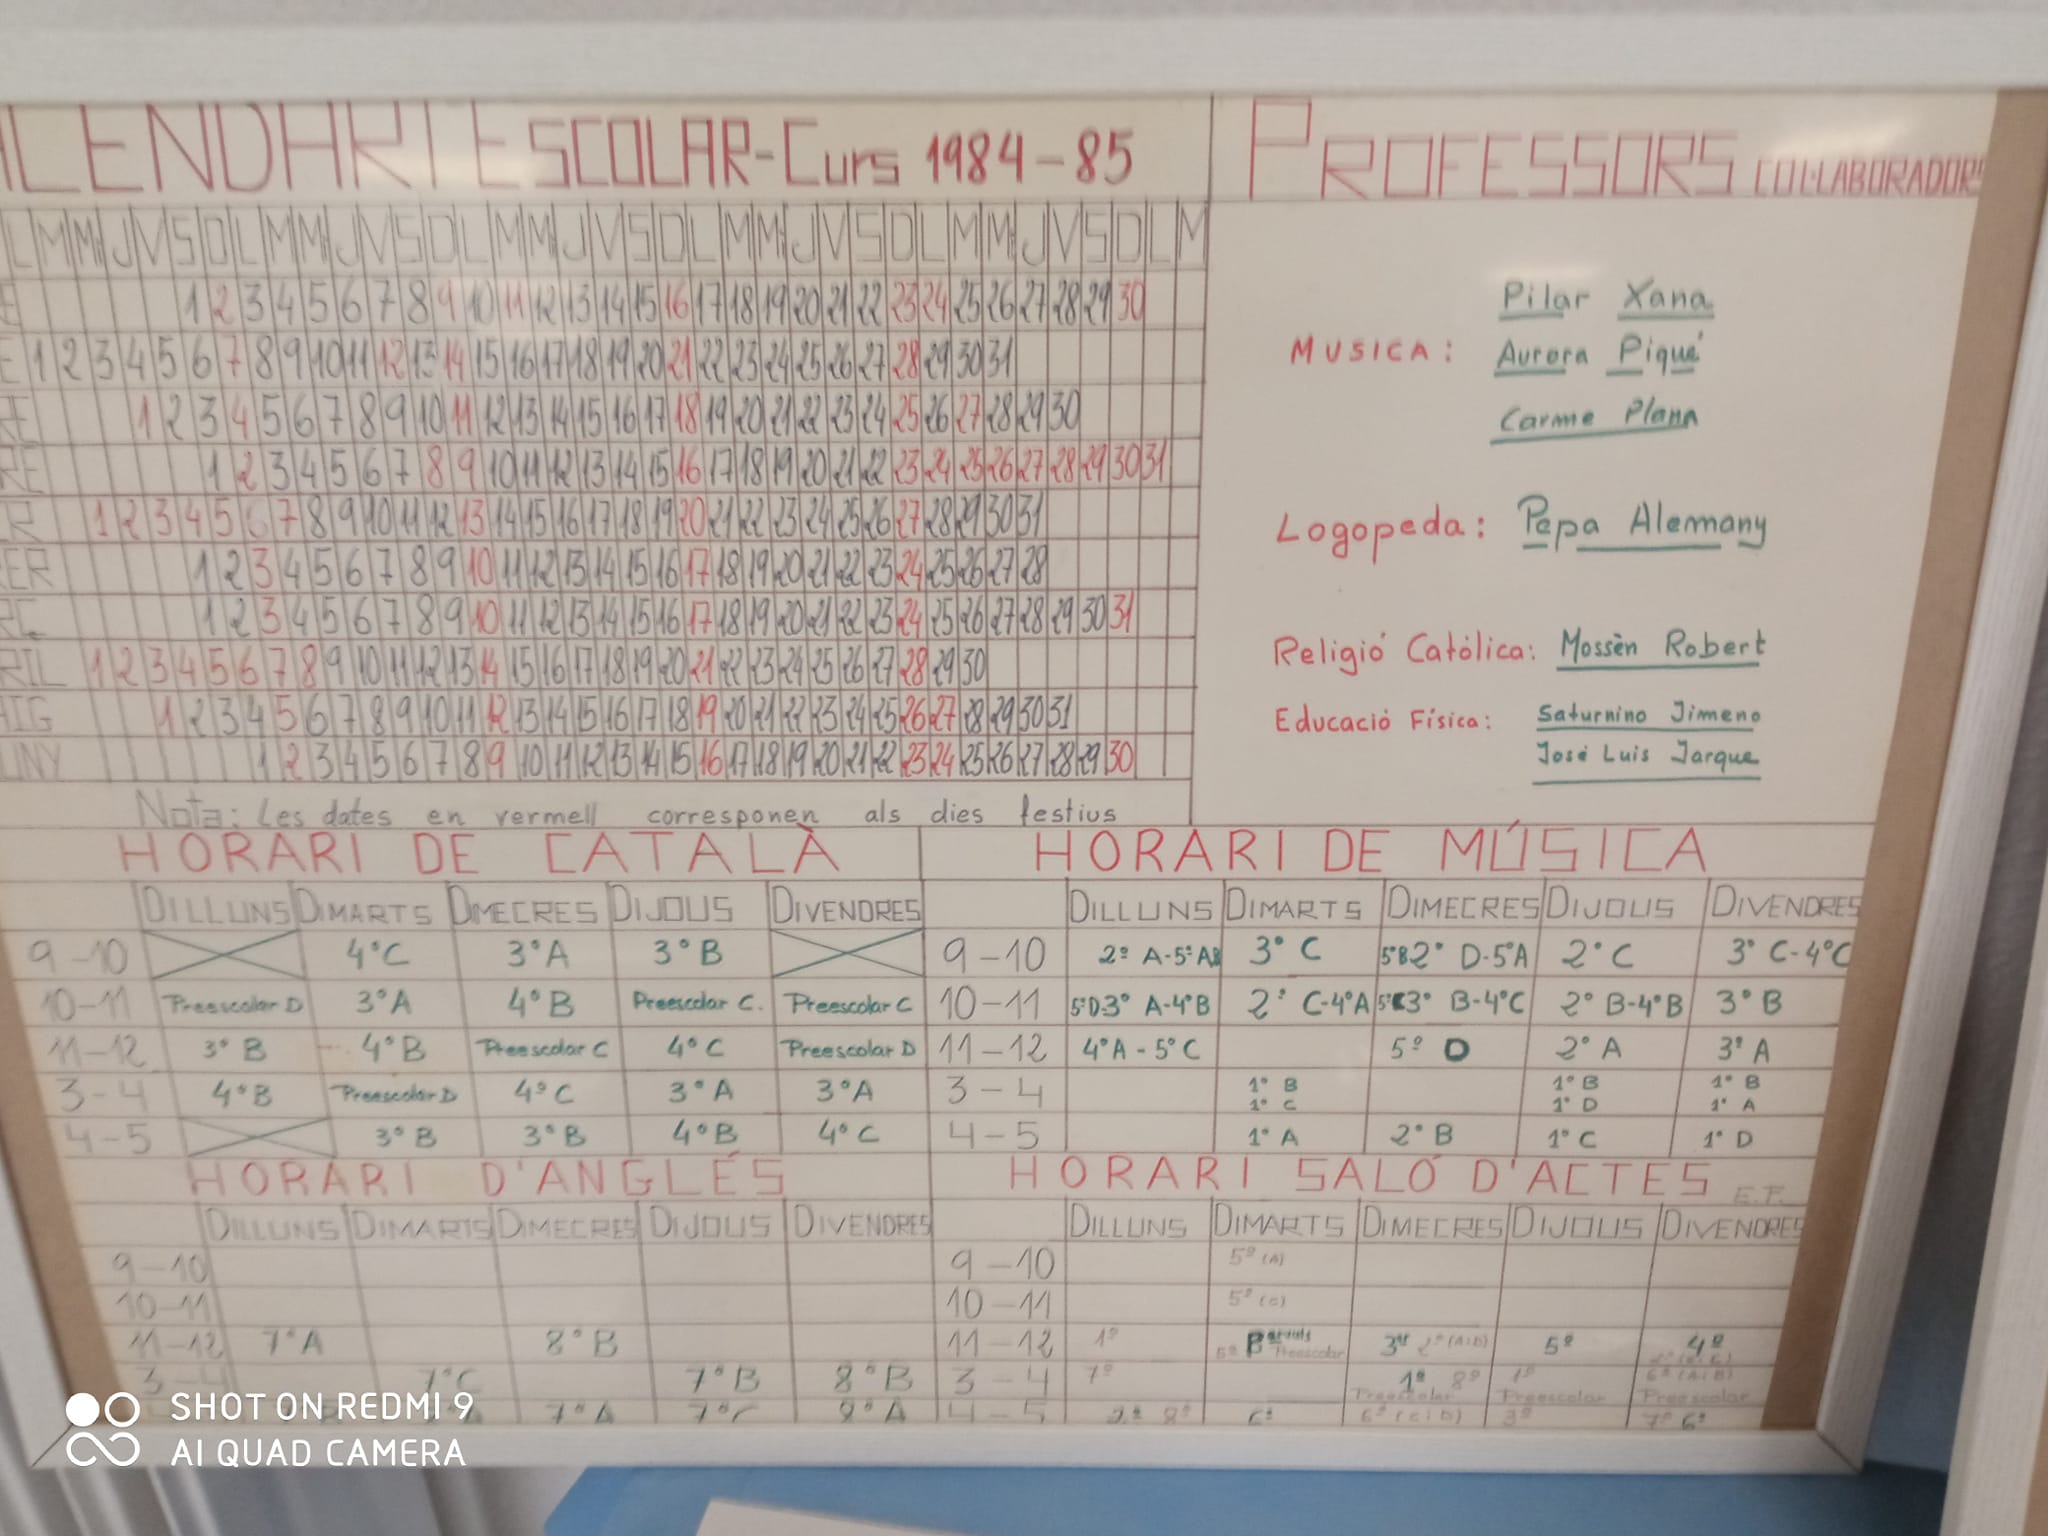 LENDARI ESCOLAR - Curs 1984-85
L M M J V S D L M M J V S D L M M J V S D L M M J V S D L M M J V S D L M
E 1 2 3 4 5 6 7 8 9 10 11 12 13 14 15 16 17 18 19 20 21 22 23 24 25 26 27 28 29 30
E 1 2 3 4 5 6 7 8 9 10 11 12 13 14 15 16 17 18 19 20 21 22 23 24 25 26 27 28 29 30 31
RE 1 2 3 4 5 6 7 8 9 10 11 12 13 14 15 16 17 18 19 20 21 22 23 24 25 26 27 28 29 30
RE 1 2 3 4 5 6 7 8 9 10 11 12 13 14 15 16 17 18 19 20 21 22 23 24 25 26 27 28 29 30 31
R 1 2 3 4 5 6 7 8 9 10 11 12 13 14 15 16 17 18 19 20 21 22 23 24 25 26 27 28 29 30 31
ER 1 2 3 4 5 6 7 8 9 10 11 12 13 14 15 16 17 18 19 20 21 22 23 24 25 26 27 28
RÇ 1 2 3 4 5 6 7 8 9 10 11 12 13 14 15 16 17 18 19 20 21 22 23 24 25 26 27 28 29 30 31
RIL 1 2 3 4 5 6 7 8 9 10 11 12 13 14 15 16 17 18 19 20 21 22 23 24 25 26 27 28 29 30
AIG 1 2 3 4 5 6 7 8 9 10 11 12 13 14 15 16 17 18 19 20 21 22 23 24 25 26 27 28 29 30 31
UNY 1 2 3 4 5 6 7 8 9 10 11 12 13 14 15 16 17 18 19 20 21 22 23 24 25 26 27 28 29 30
Nota: Les dates en vermell corresponen als dies festius
PROFESSORS COL·LABORADORS
Pilar Xana
MUSICA: Aurora Piqué
Carme Plana
Logopeda: Pepa Alemany
Religió Católica: Mossèn Robert
Educació Física: Saturnino Jimeno
José Luis Jarque
HORARI DE CATALÀ
DILLUNS DIMARTS DIMECRES DIJOUS DIVENDRES
9-10 4°C 3°A 3°B
10-11 Preescolar D 3°A 4°B Preescolar C. Preescolar C
11-12 3°B 4°B Preescolar C 4°C Preescolar D
3-4 4°B Preescolar D 4°C 3°A 3°A
4-5 3°B 3°B 4°B 4°C
HORARI DE MÚSICA
DILLUNS DIMARTS DIMECRES DIJOUS DIVENDRES
9-10 2º A-5º AB 3° C 5ºB 2° D-5°A 2° C 3° C-4°C
10-11 5°D-3° A-4°B 2° C-4°A 5°C 3° B-4°C 2° B-4°B 3° B
11-12 4°A - 5°C 5º D 2° A 3° A
3-4 1° B 1° B 1° B
1° C 1° D 1° A
4-5 1° A 2° B 1° C 1° D
HORARI D'ANGLÉS
DILLUNS DIMARTS DIMECRES DIJOUS DIVENDRES
9-10
10-11
11-12 7°A 8°B
3-4 7°C 7°B 8°B
7°A 7°C 8°A
HORARI SALÓ D'ACTES E.F.
DILLUNS DIMARTS DIMECRES DIJOUS DIVENDRES
9-10 5º (A)
10-11 5º (C)
11-12 1º 5º Parvuls Preescolar 3er 2º 5º 4º
3-4 7º 1º 8º 1º 6º (A i B)
Preescolar Preescolar Preescolar
4-5 8º 6º 6º (C i D) 3º 7º 6º
SHOT ON REDMI 9
AI QUAD CAMERA